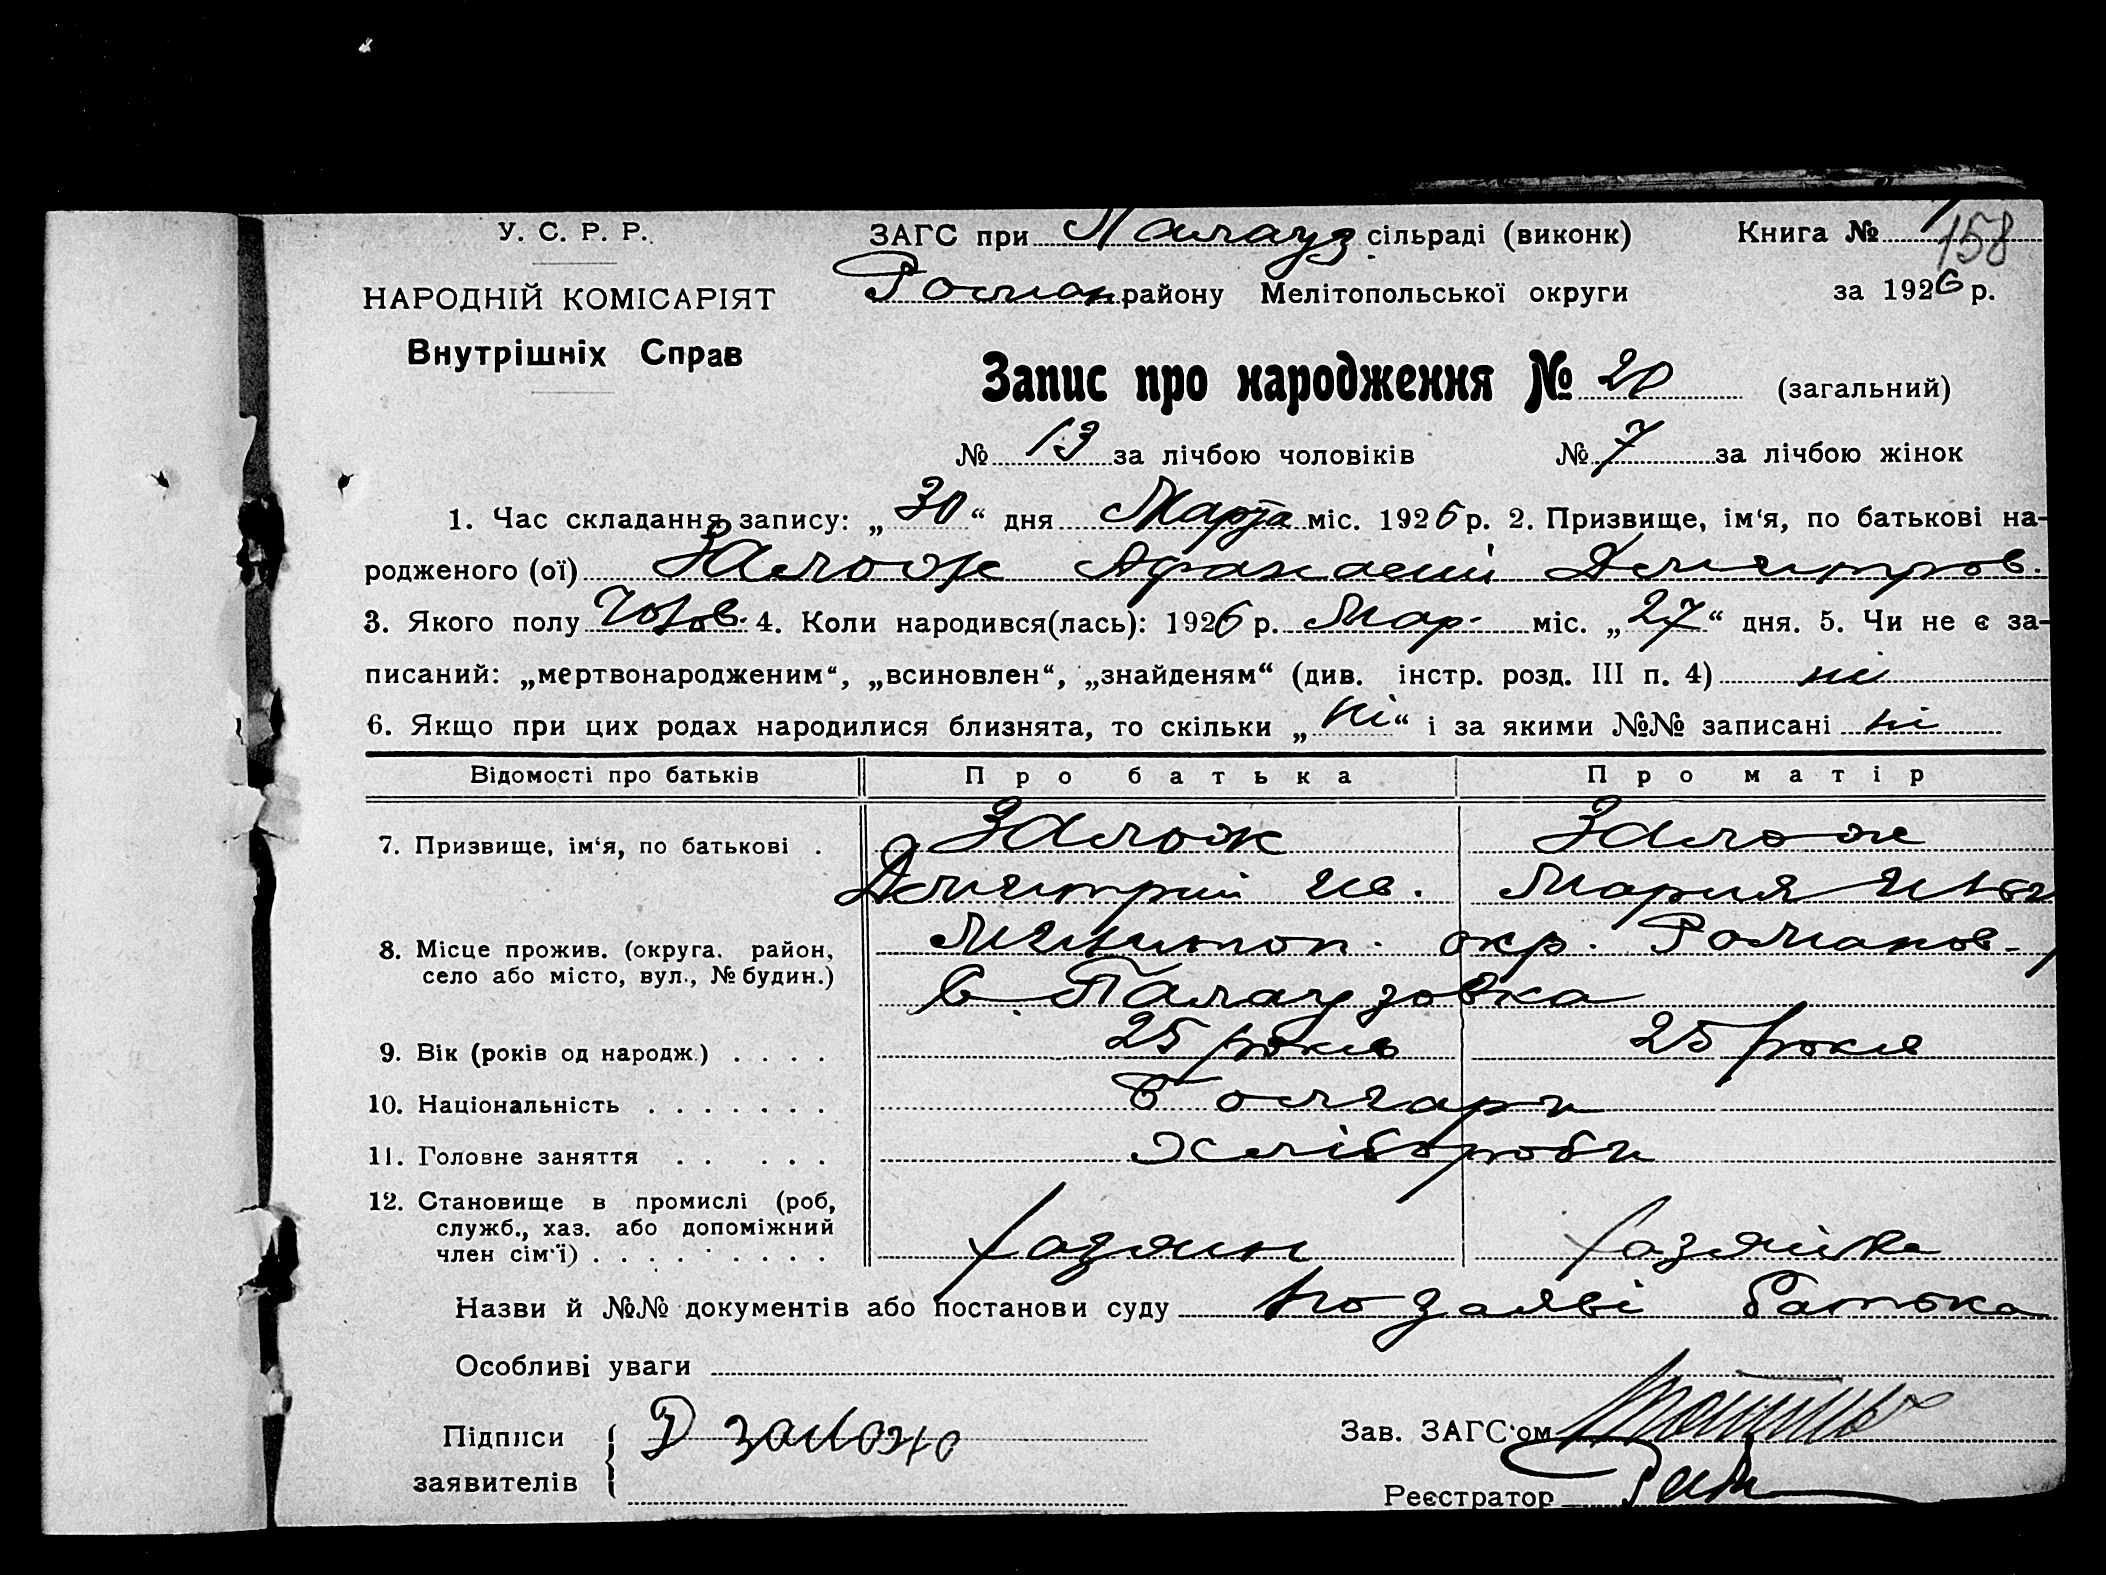 У. С. Р. Р.
НАРОДНІЙ КОМІСАРІЯТ
Внутрішніх Справ
ЗАГС при Палауз. сільраді (виконк)
Роман. району Мелітопольської округи
Книга № 158
за 1926 р.
Запис про народження № 20 (загальний)
№ 13 за лічбою чоловіків № 7 за лічбою жінок
1. Час складання запису: „30“ дня Марта міс. 1926 р. 2. Призвище, ім‘я, по батькові на-
родженого (ої) Залож Афанасий Дмитров.
3. Якого полу Чолов. 4. Коли народився(лась): 1926 р. Мар- міс. „27“ дня. 5. Чи не є за-
писаний: „мертвонародженим“, „всиновлен“, „знайденям“ (див. інстр. розд. III п. 4) ні
6. Якщо при цих родах народилися близнята, то скільки „ні“ і за якими №№ записані ні
Відомості про батьків Про батька Про матір
7. Призвище, ім‘я, по батькові . Залож Залож
Дмитрий Ив. Мария
8. Місце прожив. (округа. район, село або місто, вул., № будин.) Мелитоп. окр. Романов-
с. Палаузовка
9. Вік (років од народж.) . . . . 25 років 25 років
10. Національність . . . . . . . Болгари
11. Головне заняття . . . . . Хлібороби
12. Становище в промислі (роб, служб., хаз. або допоміжний член сім‘ї) . . . . . . . . . хазяин хазяйка
Назви й №№ документів або постанови суду по заяві батька
Особливі уваги
Підписи заявителів Д Заложо
Зав. ЗАГС‘ом
Реєстратор